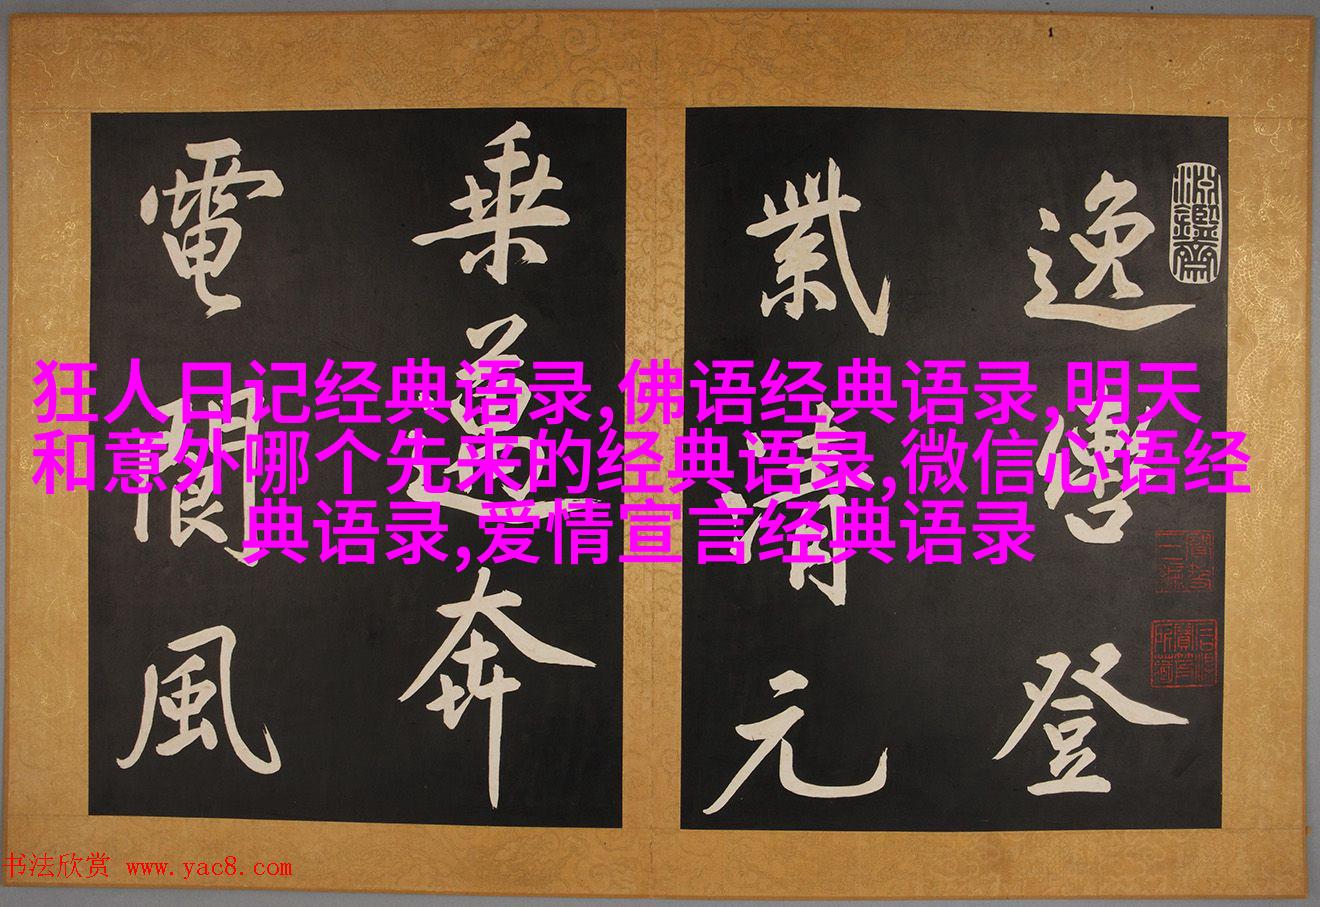 逸
登
紫
清
元
乘
奔
電
閬
風
狂人日记经典语录,佛语经典语录,明天
和意外哪个先来的经典语录,微信心语经
典语录,爱情宣言经典语录
书法欣赏 www.yac8.com